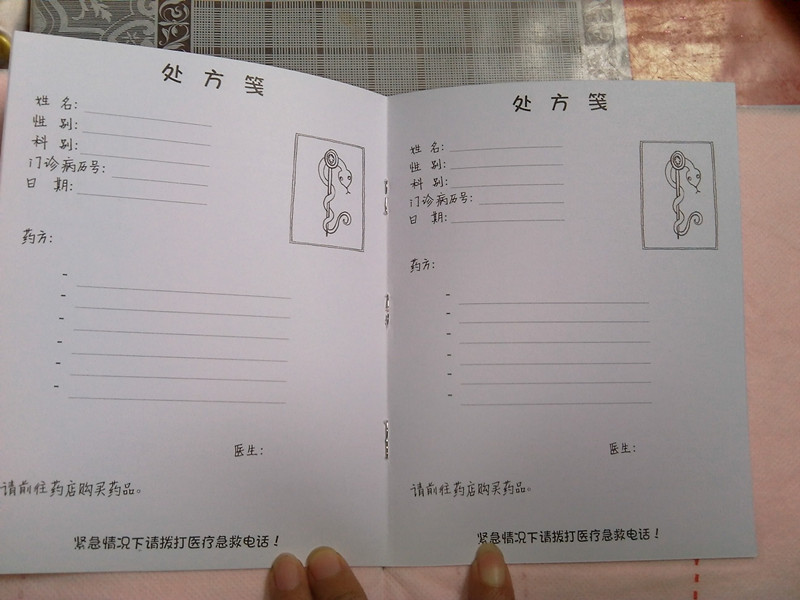 处方笺
姓 名:
性 别:
科 别:
门诊病历号:
日 期:
药方:
医生:
请前往药店购买药品。
紧急情况下请拨打医疗急救电话！
处方笺
姓 名:
性 别:
科 别:
门诊病历号:
日 期:
药方:
医生:
请前往药店购买药品。
紧急情况下请拨打医疗急救电话！